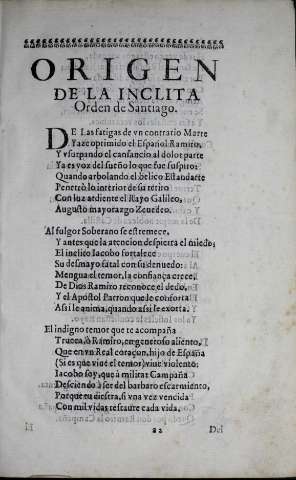 ORIGEN
DE LA INCLITA
Orden de Santiago.
DE Las fatigas de vn contrario Marte
Yaze oprimido el Español Ramiro,
Y vsurpando el cansancio al dolor parte
Ya es voz del sueño lo que fue suspiro:
Quando arbolando el belico Estandarte
Penetrò lo interior de su retiro
Con luz ardiente el Rayo Galileo,
Augusto mayorazgo Zeuedeo.
Al fulgor Soberano se estremece,
Y antes que la atencion despierta el miedo;
El inclito Iacobo fortalece
Su desmayo fatal con su denuedo:
Mengua el temor, la confiança crece,
De Dios Ramiro reconoce el dedo,
Y el Apostol Patron que le conforta
Assi le anima, quando assi le exorta.
El indigno temor que te acompaña
Trueca, ò Ramiro, en generoso aliento,
Que en vn Real coraçon, hijo de España
(Si es que viue el temor) viue violento:
Iacobo soy, que à militar Campaña
Desciendo à ser del barbaro escarmiento,
Porque tu diestra, si vna vez vencida
Con mil vidas restaure cada vida.
Del